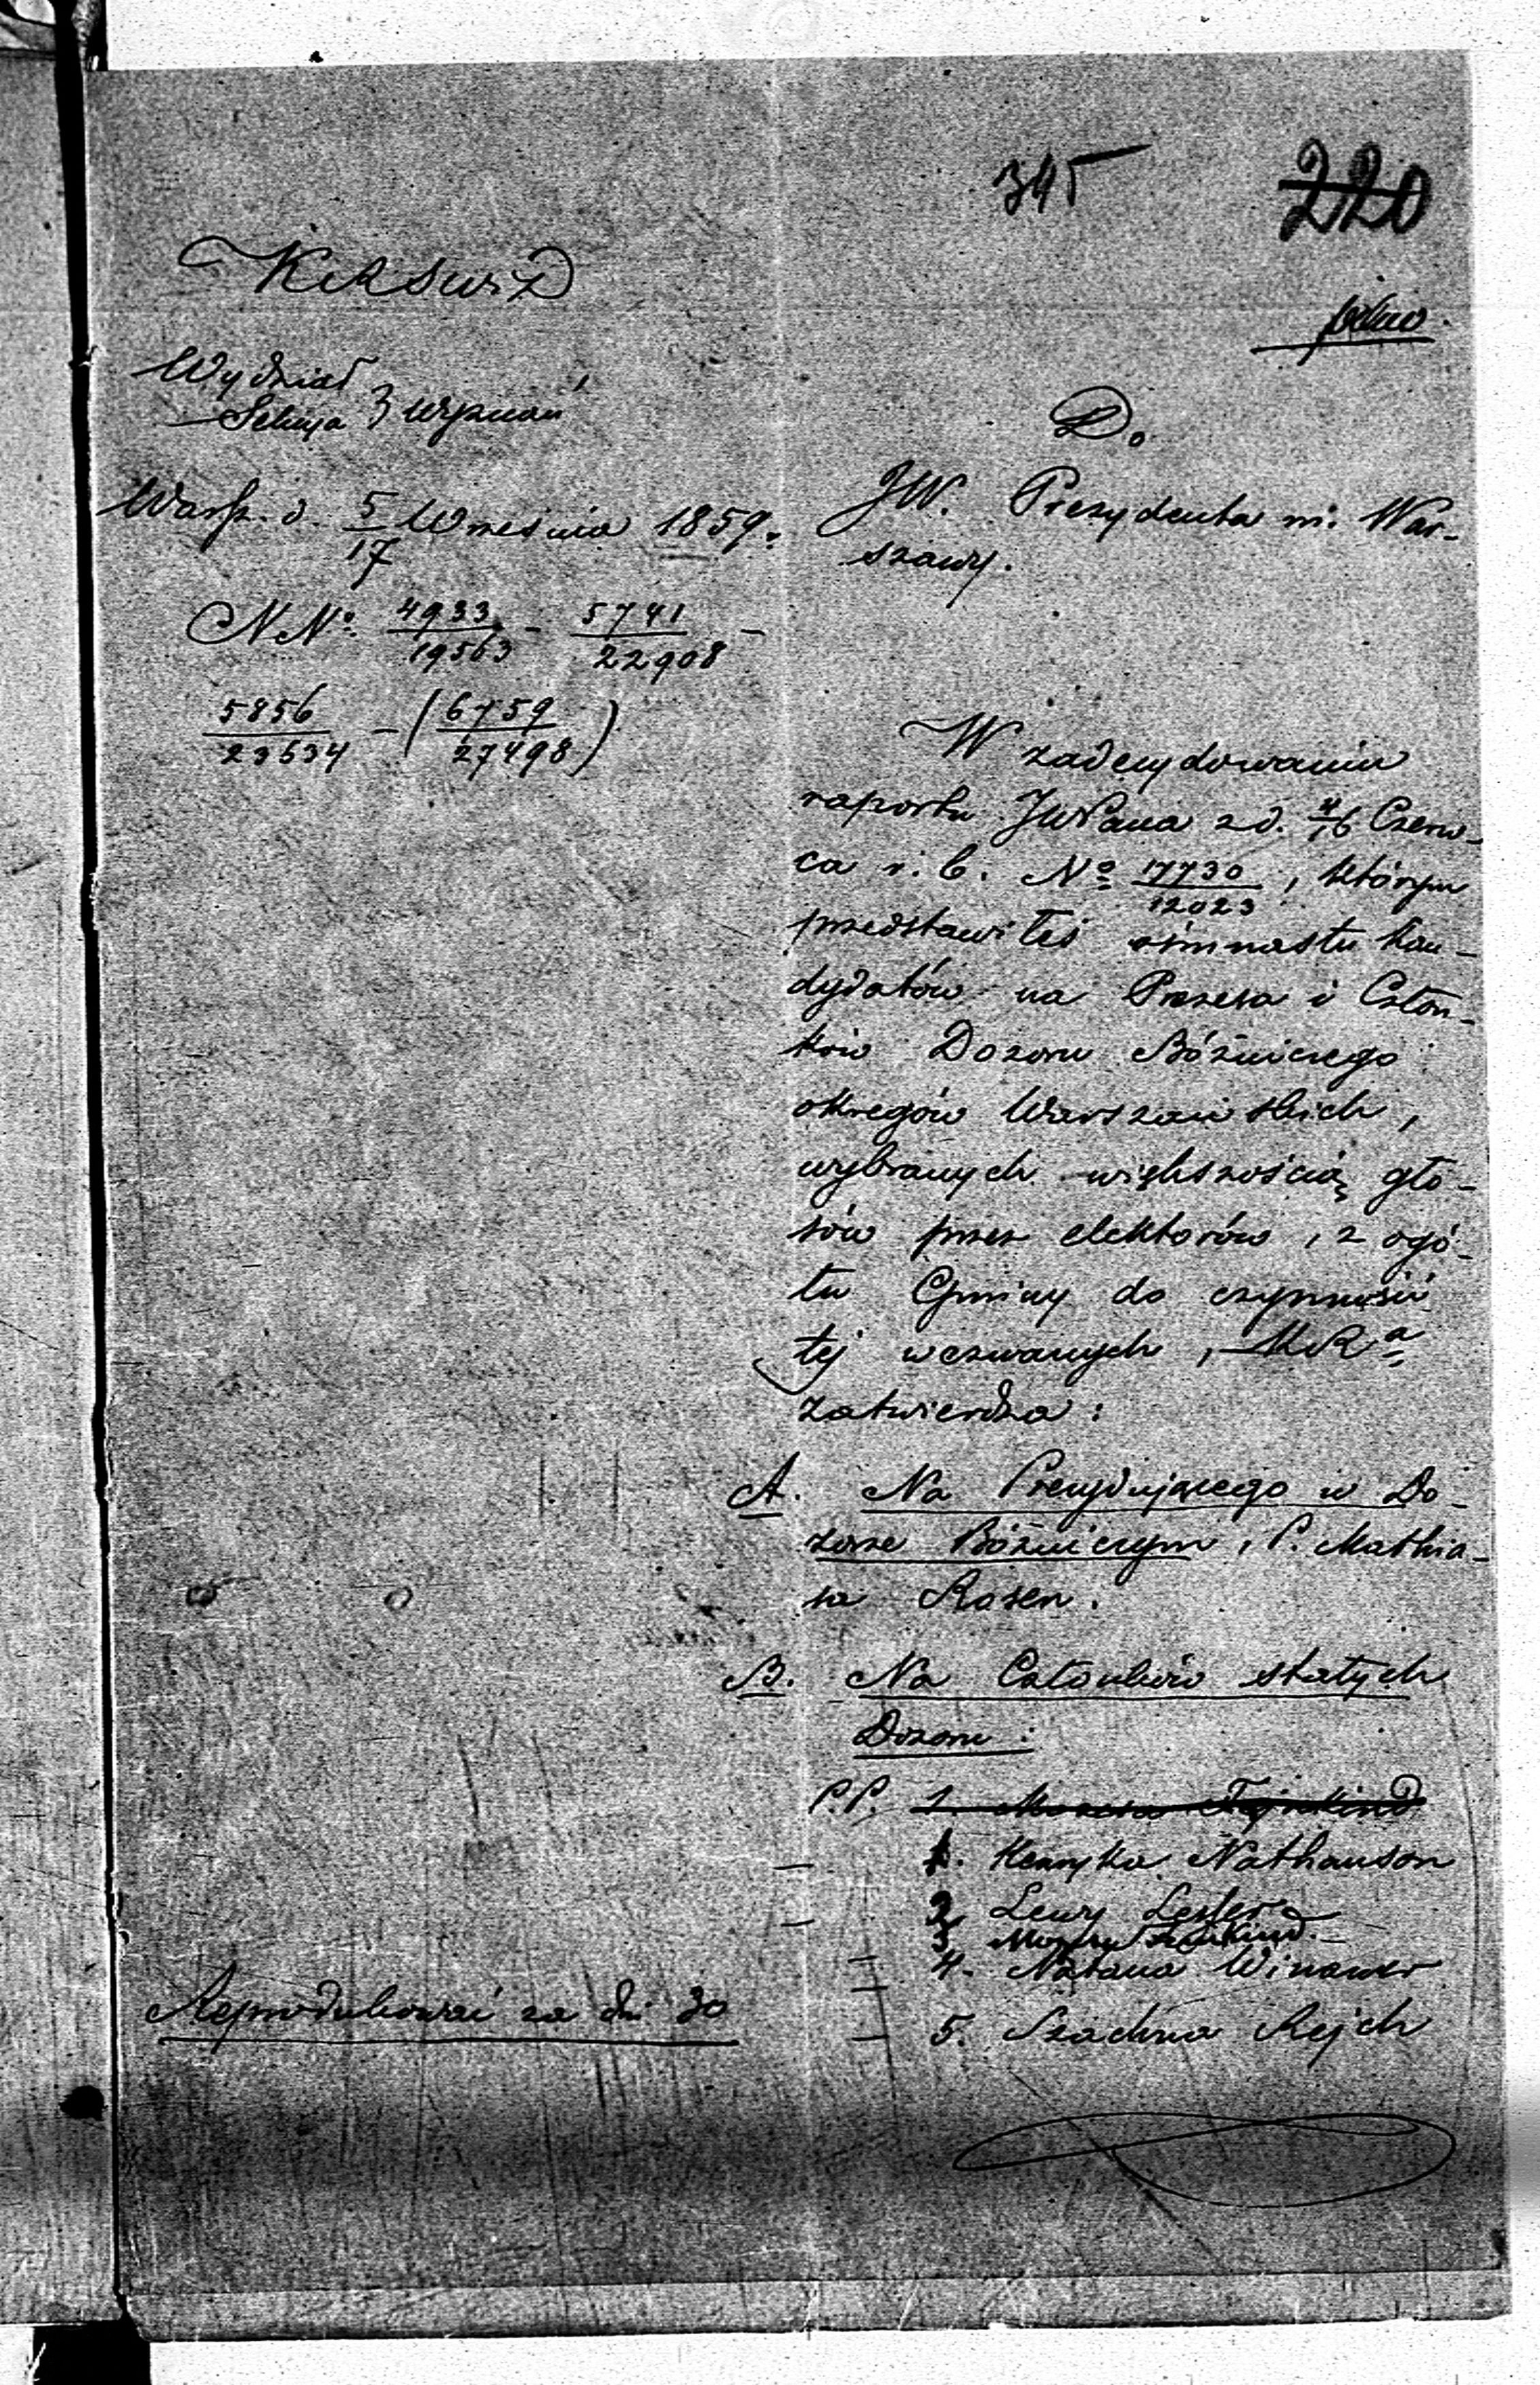 345 220
pilno.
KRSWiD
Wydział
Sekcya } Wyznań
Warsz. d. 5/17 Września 1859.
NNo. 4933/19563 - 5741/22908 -
5856/23634 - (6759/27498)
Do
JW. Prezydenta m. War-
szawy.
W zadecydowaniu
raportu JWPana z d. 4/16 Czerw-
ca r. b. No 17730/12023, którym
przedstawiłeś ośmnastu kan-
dydatów na Prezesa i Człon-
ków Dozoru Bóżniczego
okręgów Warszawskich,
wybranych większością gło-
sów przez elektorów, z ogó-
łu Gminy do czynności
tej wezwanych, KRa
zatwierdza:
A. Na Prezydującego w Do-
zorze Bóżniczym, P. Mathia-
sa Rosen.
B. Na Członków stałych
Dozoru:
P.P. 1. Mozesa Fejnkind
1. Henryka Nathanson
2. Lewy Lesser
3. Mozesa Fejnkind.
4. Natana Winawer
5. Szachna Rejch
Reprodukować za dni 30